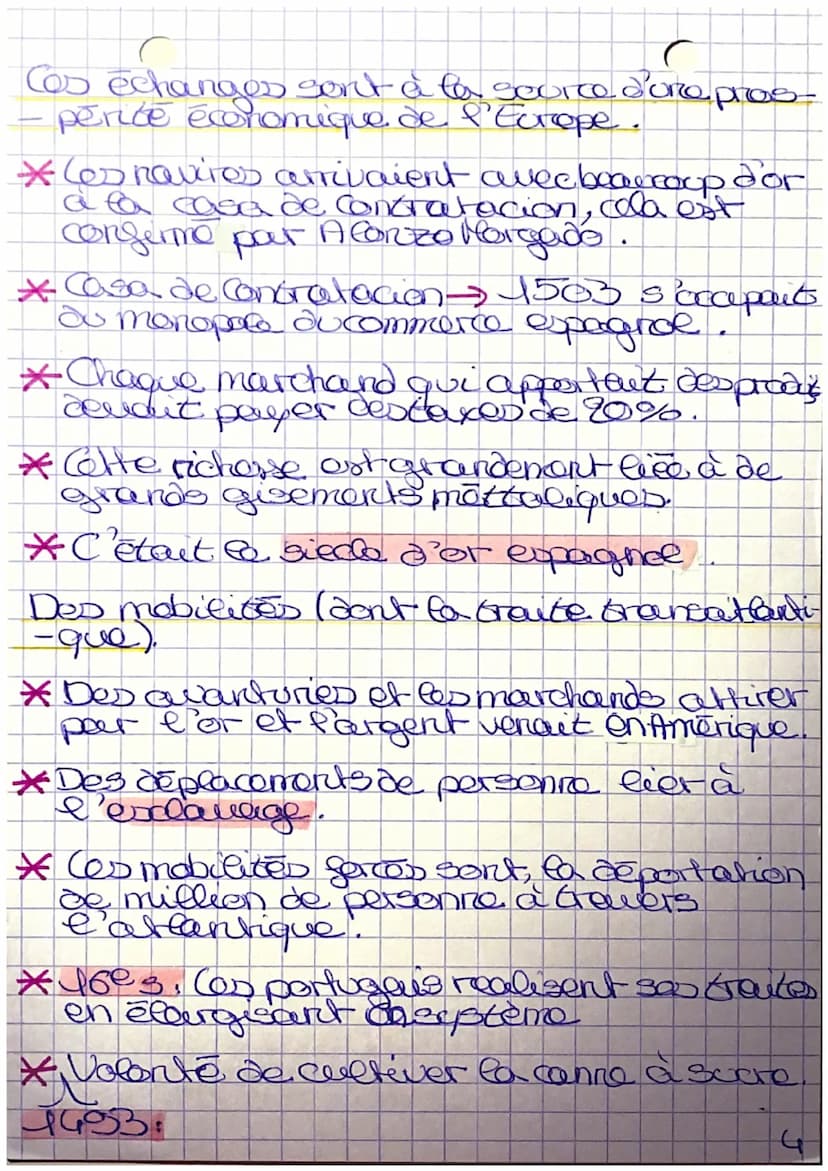 Ces échanges sont à la source d'une pros-
-périté économique de l'Europe.
* Les navires arrivaient avec beaucoup d'or
à la casa de contratacion, cela est
confirmé par Alonzo Morgado.
* Casa de Contratacion → 1503 s'occupaits
du monopole du commerce espagnol.
* Chaque marchand qui apportait des produits
devait payer des taxes de 20%.
* Cette richesse est grandement liée à de
grands gisements méttaliques.
* C'était le siècle d'or espagnol.
Des mobilités (dont la traite transatlanti-
-que).
* Des avanturies et les marchands attirer
par l'or et l'argent venait en Amérique.
* Des déplacements de personne lier à
l'esclavage.
* Ces mobilités forcés sont, la déportation
de million de personne à travers
l'atlantique.
* 16e s. Les portugais realisent ses traites
en élargisant
* Volonté de cultiver la canne à sucre.
1493:
4